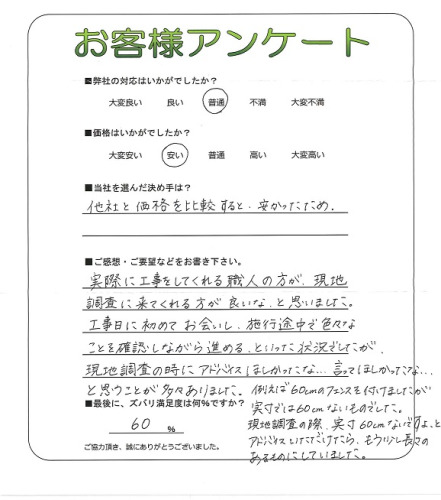 お客様アンケート
■弊社の対応はいかがでしたか？
大変良い 良い 普通 不満 大変不満
■価格はいかがでしたか？
大変安い 安い 普通 高い 大変高い
■当社を選んだ決め手は？
他社と価格を比較すると、安かったため。
■ご感想・ご要望などをお書き下さい。
実際に工事をしてくれる職人の方が、現地
調査に来てくれる方が良いな、と思いました。
工事日に初めてお会いし、施行途中で色々な
ことを確認しながら進める、といった状況でしたが、
現地調査の時にアドバイスほしかったな…言ってほしかったな…
と思うことが多々ありました。例えば60cmのフェンスを付けましたが
■最後に、ズバリ満足度は何%ですか？
60 %
実寸では60cmないものでした。
現地調査の際、実寸60cmないですよ、と
アドバイスいただけたら、もう少し長めの
あるものにしていました。
ご協力頂き、誠にありがとうございました。